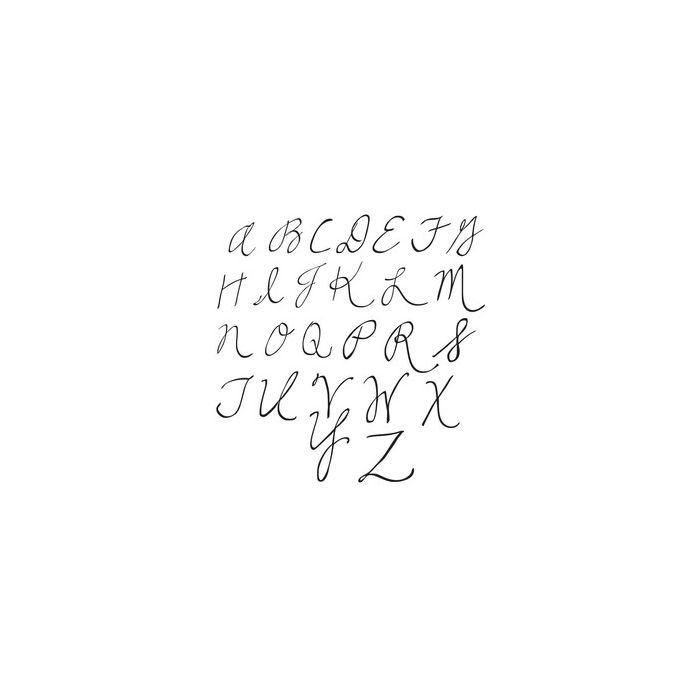 A B C D E F G
H I J K L M
N O Q P R S
T U V W X
Y Z